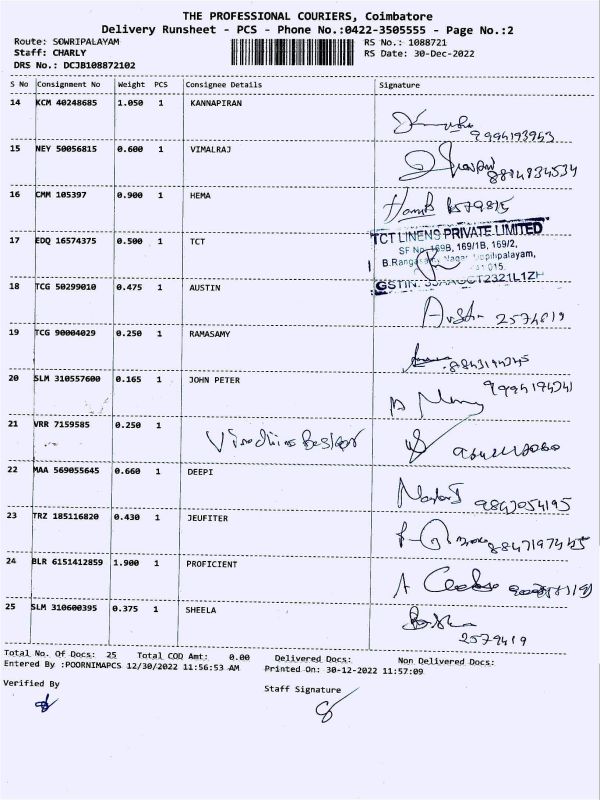 THE PROFESSIONAL COURIERS, Coimbatore
Delivery Runsheet - PCS - Phone No.:0422-3505555 - Page No.:2
Route: SOWRIPALAYAM RS No.: 1088721
Staff: CHARLY RS Date: 30-Dec-2022
DRS No.: DCJB108872102
S No Consignment No Weight PCS Consignee Details Signature
14 KCM 40248685 1.050 1 KANNAPIRAN
9994193953
15 NEY 50056815 0.600 1 VIMALRAJ
16 CMM 105397 0.900 1 HEMA
TCT LINENS PRIVATE LIMITED
17 EDQ 16574375 0.500 1 TCT
SF No. 169B, 169/1B, 169/2,
GSTIN:
18 TCG 50299010 0.475 1 AUSTIN
2574819
19 TCG 90004029 0.250 1 RAMASAMY
20 SLM 310557600 0.165 1 JOHN PETER
21 VRR 7159585 0.250 1
22 MAA 569055645 0.660 1 DEEPI
9842054195
23 TRZ 185116820 0.430 1 JEUFITER
24 BLR 6151412859 1.900 1 PROFICIENT
25 SLM 310600395 0.375 1 SHEELA
2579419
Total No. Of Docs: 25 Total COD Amt: 0.00 Delivered Docs: Non Delivered Docs:
Entered By :POORNIMAPCS 12/30/2022 11:56:53 AM Printed On: 30-12-2022 11:57:09
Verified By
Staff Signature